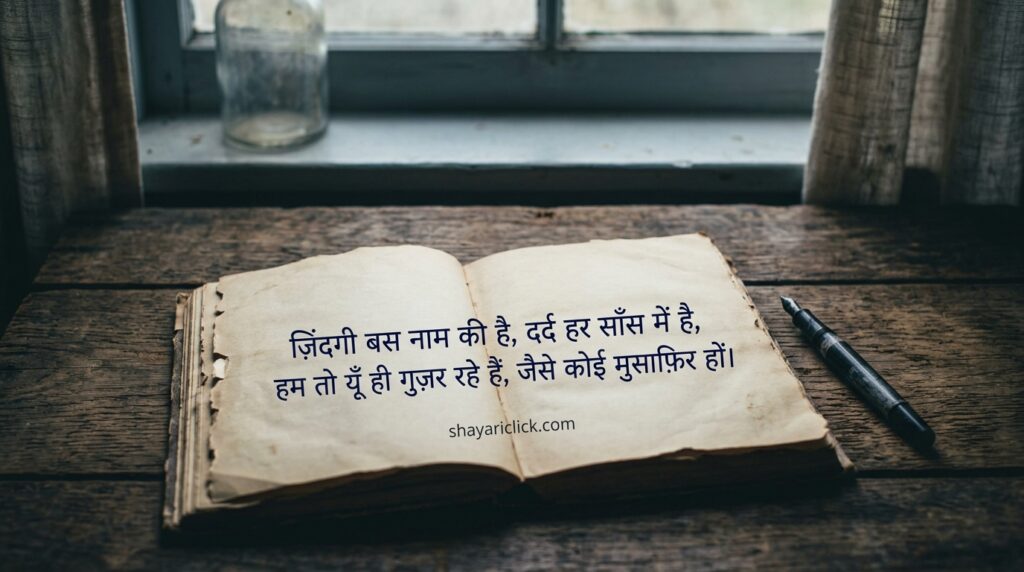 ज़िंदगी बस नाम की है, दर्द हर साँस में है,
हम तो यूँ ही गुज़र रहे हैं, जैसे कोई मुसाफ़िर हों।
shayariclick.com